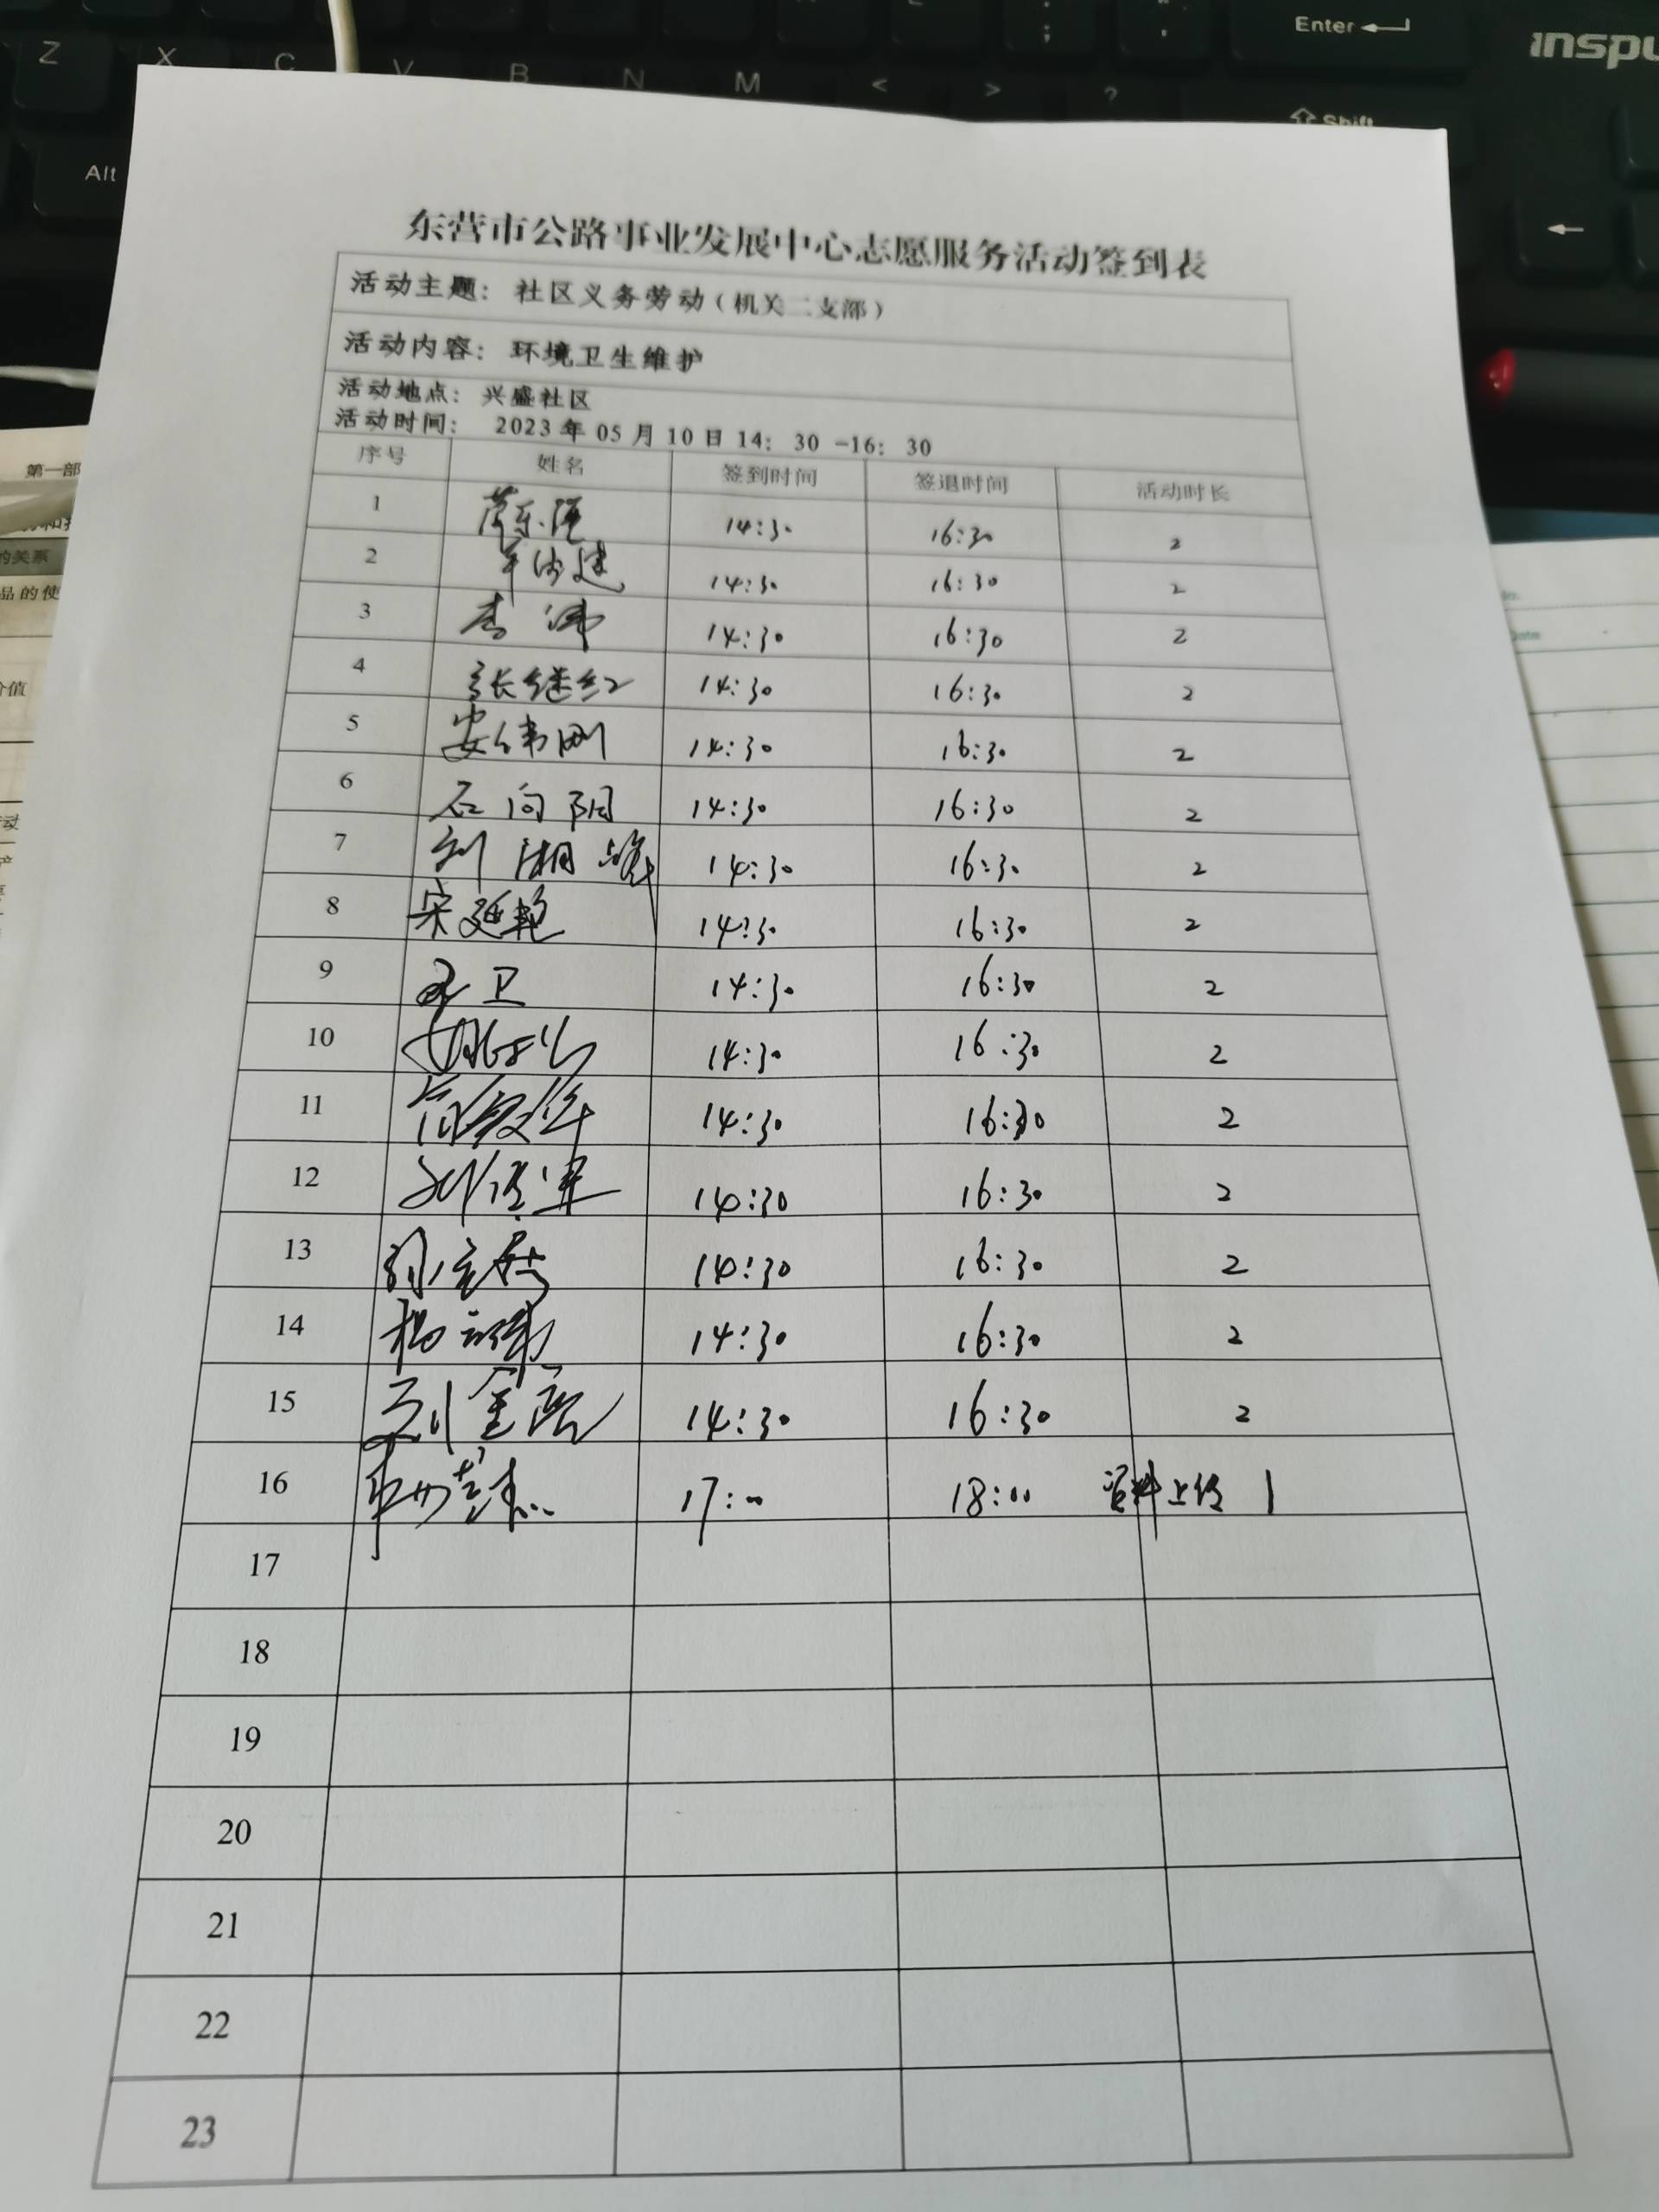 Enter
inspu
Z X C V B N M < > ?
Shift
Alt
第一部
的关系
品的使
价值
Date
东营市公路事业发展中心志愿服务活动签到表
活动主题：社区义务劳动（机关二支部）
活动内容：环境卫生维护
活动地点：兴盛社区
活动时间： 2023年05月10日14：30-16：30
序号 姓名 签到时间 签退时间 活动时长
1 14:30 16:30 2
2 14:30 16:30 2
3 李 14:30 16:30 2
4 张继红 14:30 16:30 2
5 安伟刚 14:30 16:30 2
6 石向阳 14:30 16:30 2
7 刘湘峰 14:30 16:30 2
8 宋延艳 14:30 16:30 2
9 卫 14:30 16:30 2
10 14:30 16:30 2
11 14:30 16:30 2
12 14:30 16:30 2
13 14:30 16:30 2
14 杨 14:30 16:30 2
15 刘金 14:30 16:30 2
16 17:00 18:00 资料上传 1
17
18
19
20
21
22
23